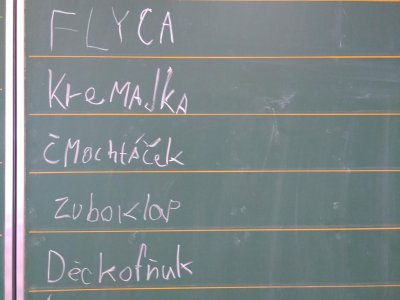 FLYCA
KreMAJKA
čMochtáček
zuboklap
Děckofňuk